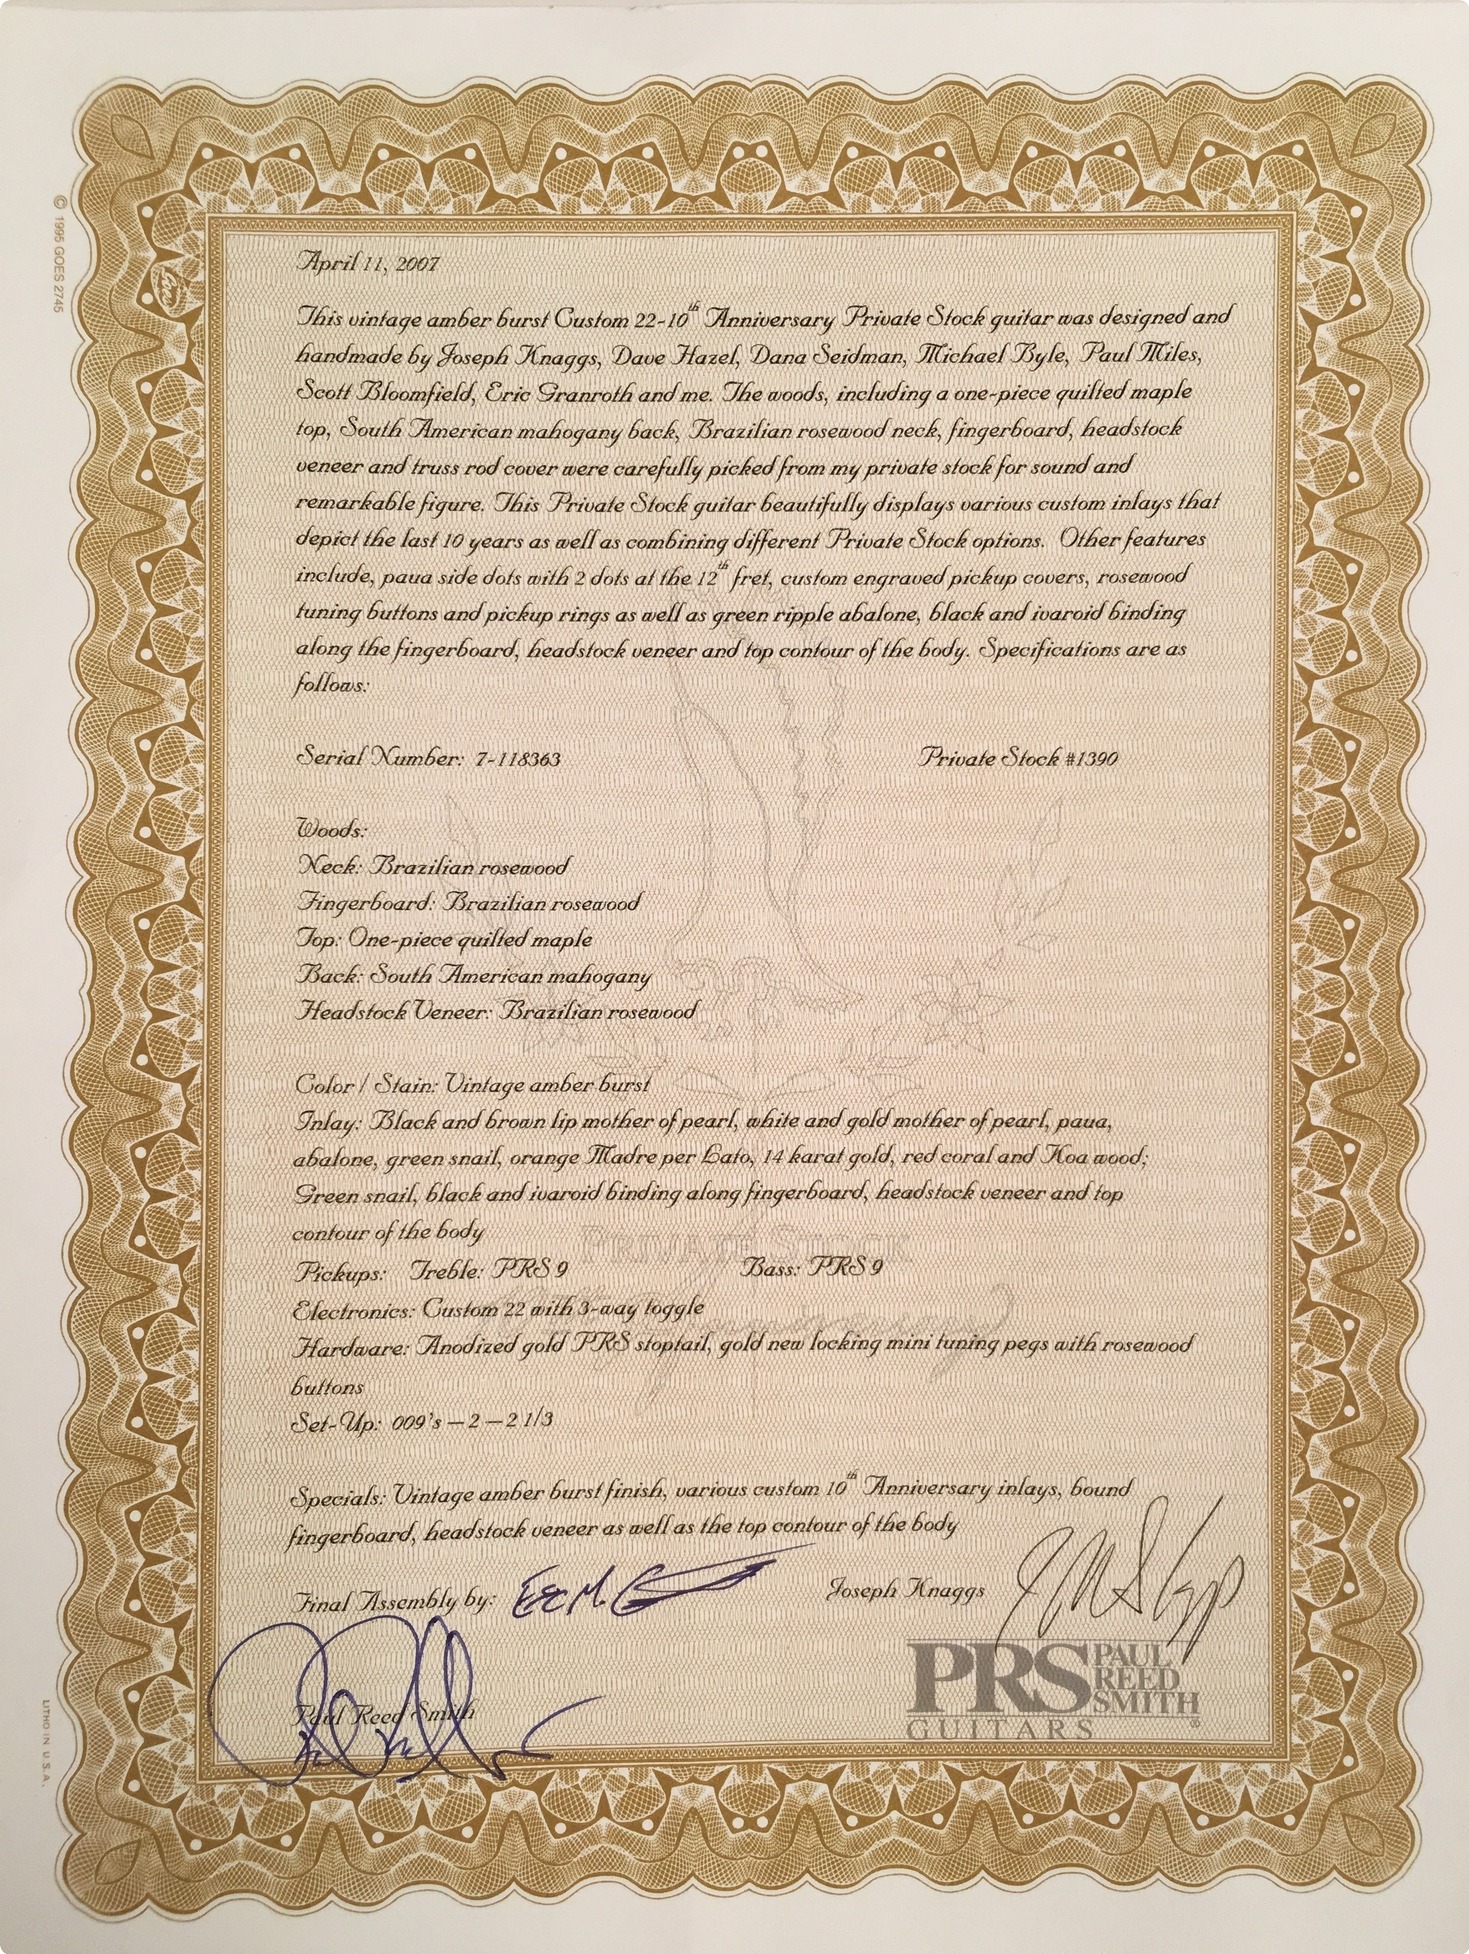 © 1995 GOES 2745
Goes
April 11, 2007
This vintage amber burst Custom 22-10th Anniversary Private Stock guitar was designed and
handmade by Joseph Knaggs, Dave Hazel, Dana Seidman, Michael Byle, Paul Miles,
Scott Bloomfield, Eric Granroth and me. The woods, including a one-piece quilted maple
top, South American mahogany back, Brazilian rosewood neck, fingerboard, headstock
veneer and truss rod cover were carefully picked from my private stock for sound and
remarkable figure. This Private Stock guitar beautifully displays various custom inlays that
depict the last 10 years as well as combining different Private Stock options. Other features
include, paua side dots with 2 dots at the 12th fret, custom engraved pickup covers, rosewood
tuning buttons and pickup rings as well as green ripple abalone, black and ivaroid binding
along the fingerboard, headstock veneer and top contour of the body. Specifications are as
follows:
Serial Number: 7-118363 Private Stock #1390
Woods:
Neck: Brazilian rosewood
Fingerboard: Brazilian rosewood
Top: One-piece quilted maple
Back: South American mahogany
Headstock Veneer: Brazilian rosewood
Color / Stain: Vintage amber burst
Inlay: Black and brown lip mother of pearl, white and gold mother of pearl, paua,
abalone, green snail, orange Madre per Lato, 14 karat gold, red coral and Koa wood;
Green snail, black and ivaroid binding along fingerboard, headstock veneer and top
contour of the body
PRIVATE STOCK
Pickups: Treble: PRS 9 Bass: PRS 9
Electronics: Custom 22 with 3-way toggle
Hardware: Anodized gold PRS stoptail, gold new locking mini tuning pegs with rosewood
buttons
Set-Up: 009's – 2 – 2 1/3
Specials: Vintage amber burst finish, various custom 10th Anniversary inlays, bound
fingerboard, headstock veneer as well as the top contour of the body
Final Assembly by: Joseph Knaggs
Paul Reed Smith
PRS PAUL REED SMITH
GUITARS
LITHO IN U.S.A.